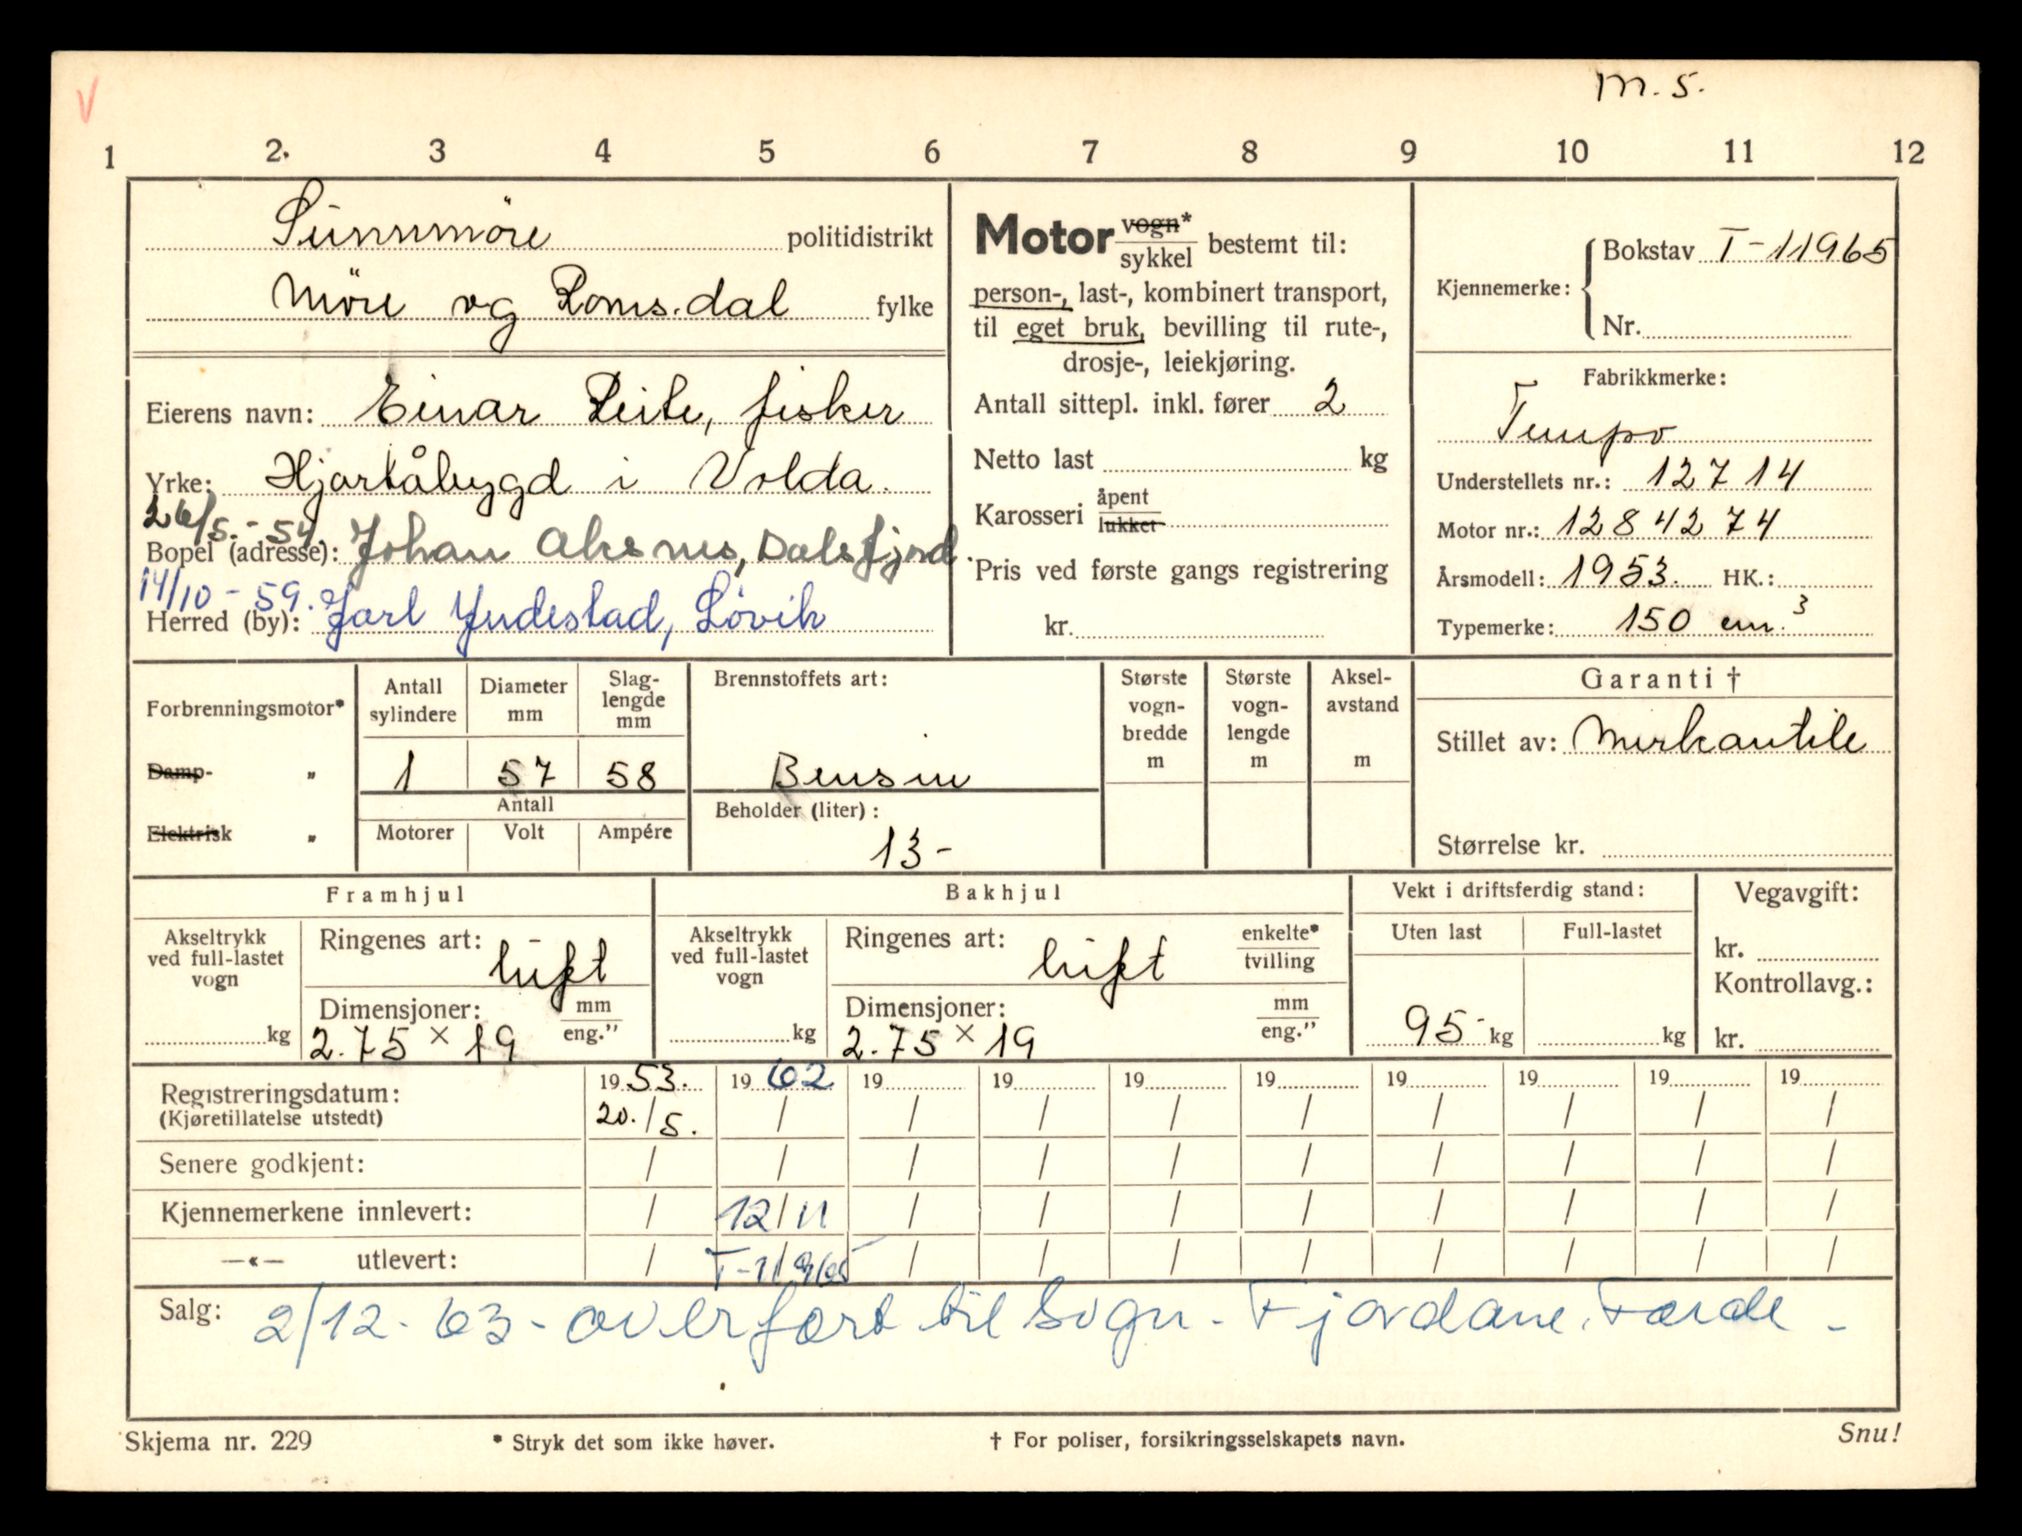 V
m. s.
1 2. 3 4 5 6 7 8 9 10 11 12
Sunnmöre politidistrikt
Möre og Romsdal fylke
Eierens navn: Einar Leite, fisker
Yrke: Hjartåbygd i Volda.
26/5. - 54.
Bopel (adresse): Johan Aksnes, Dalsfjord.
14/10 - 59.
Herred (by): Jarl Yndestad, Løvik
Motor vogn* / sykkel bestemt til:
person-, last-, kombinert transport,
til eget bruk, bevilling til rute-,
drosje-, leiekjøring.
Antall sittepl. inkl. fører 2
Netto last kg
Karosseri åpent / lukket
Pris ved første gangs registrering
kr.
Kjennemerke: Bokstav T-11965
Nr.
Fabrikkmerke:
Tempo
Understellets nr.: 12714
Motor nr.: 1284274
Årsmodell: 1953. HK.:
Typemerke: 150 cm.³
Forbrenningsmotor*
Damp- „
Elektrisk „
Antall sylindere
Diameter mm
Slag-lengde mm
1 57 58
Antall
Motorer Volt Ampére
Brennstoffets art:
Bensin
Beholder (liter):
13-
Største vogn-bredde m
Største vogn-lengde m
Aksel-avstand m
Garanti †
Stillet av: Merkantile
Størrelse kr.
Framhjul
Akseltrykk ved full-lastet vogn
kg
Ringenes art: luft
Dimensjoner: mm / eng."
2.75 × 19
Bakhjul
Akseltrykk ved full-lastet vogn
kg
Ringenes art: luft enkelte* / tvilling
Dimensjoner: mm / eng."
2.75 × 19
Vekt i driftsferdig stand:
Uten last Full-lastet
95- kg kg
Vegavgift:
kr.
Kontrollavg.:
kr.
Registreringsdatum: 1953. 1962 19 19 19 19 19 19 19 19
(Kjøretillatelse utstedt) 20./5. / / / / / / / / /
Senere godkjent: / / / / / / / / / /
Kjennemerkene innlevert: / 12/11 / / / / / / / /
—«— utlevert: / T-11965 / / / / / / / /
Salg: 2/12-63- overført til Sogn - Fjordane. Førde -
Skjema nr. 229 * Stryk det som ikke høver. † For poliser, forsikringsselskapets navn. Snu!